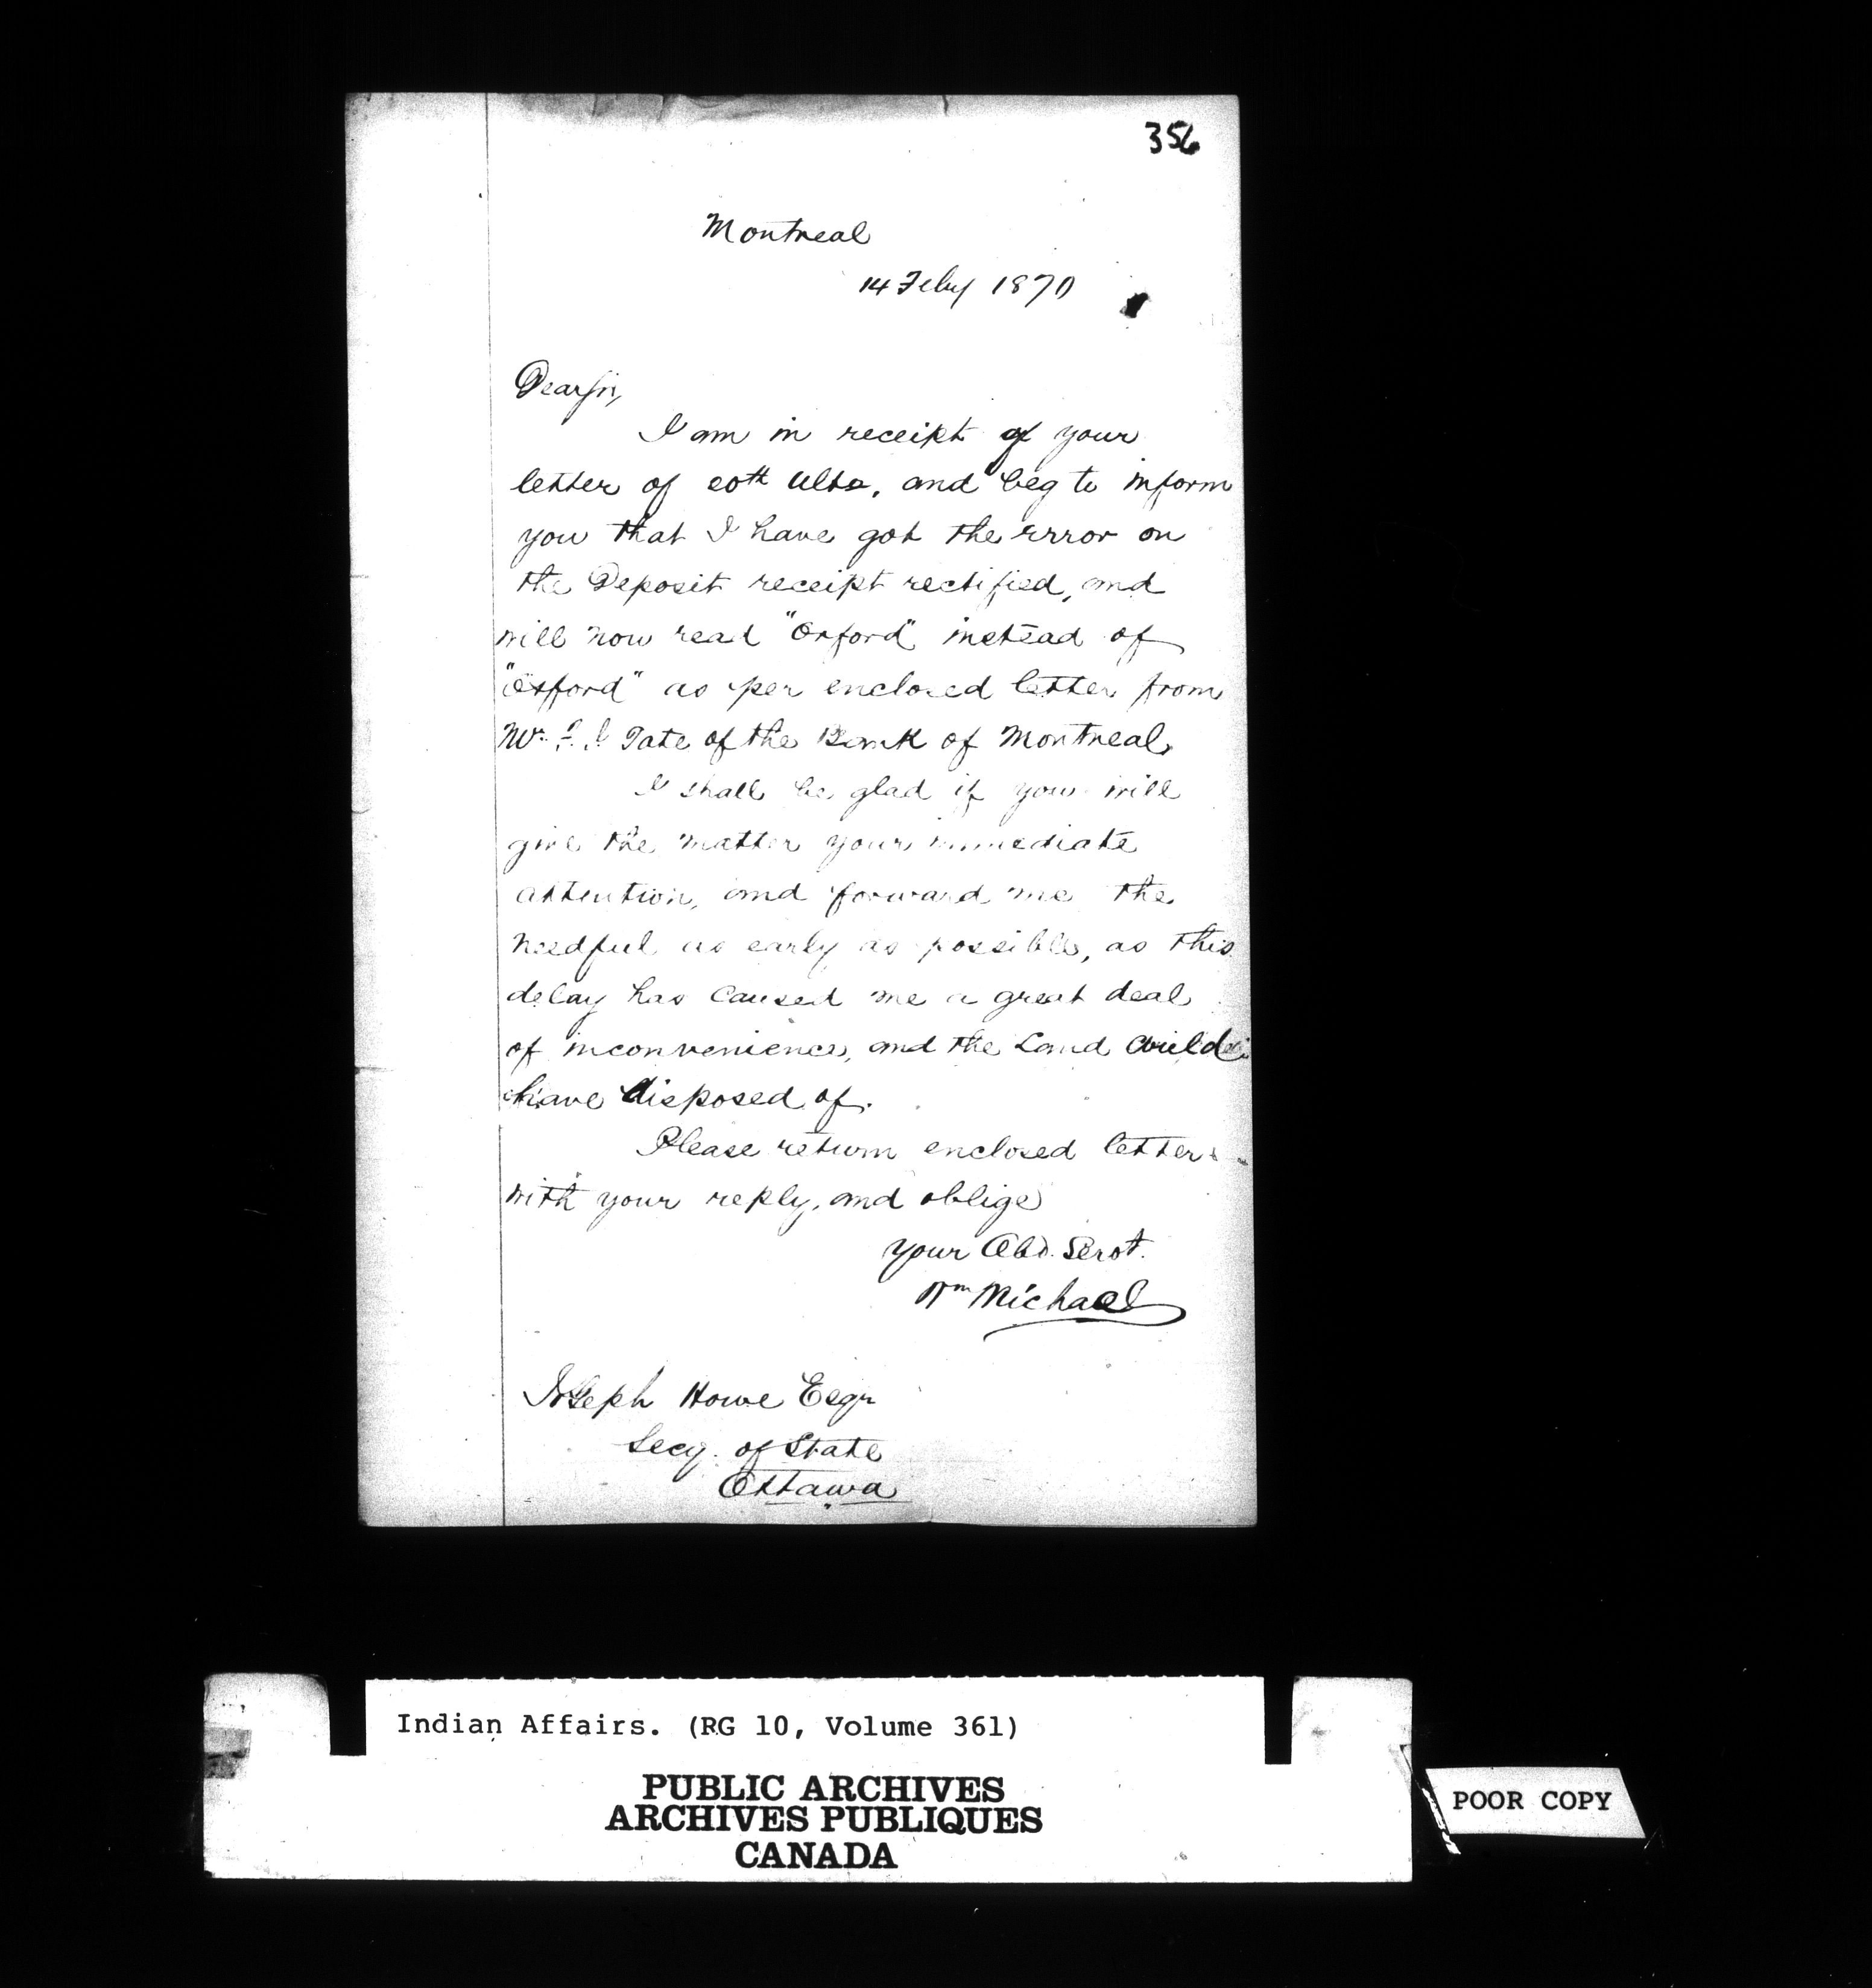 356
Montreal
14 Feby 1870
Dear Sir,
I am in receipt of your
letter of 20th Ulto, and beg to inform
you that I have got the error on
the Deposit receipt rectified, and
will now read "Orford" instead of
"Oxford" as per enclosed letter from
Mr. Tate of the Bank of Montreal,
I shall be glad if you will
give the matter your immediate
attention, and forward me the
needful as early as possible, as this
delay has caused me a great deal
of inconvenience, and the Land could
have disposed of.
Please return enclosed letter
with your reply, and oblige
your Obd. Servt.
Wm Michael
Joseph Howe Esqr
Secy. of State
Ottawa
Indian Affairs. (RG 10, Volume 361)
PUBLIC ARCHIVES
ARCHIVES PUBLIQUES
CANADA
POOR COPY